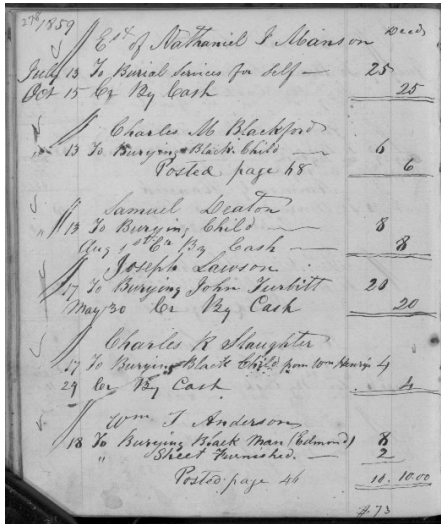 278 1859
Est of Nathaniel J Manson Deeds
July 13 To Burial Services for Self — 25
Oct 15 Cr By Cash 25
Charles M Blackford
" 13 To Burying Black Child — 6
Posted page 68 6
Samuel Deaton
" 13 To Burying Child — 8
Aug 1st Cr By Cash — 8
Joseph Lawson
17 To Burying John Turbitt 20
May 30 Cr By Cash 20
Charles R Slaughter
17 To Burying Black Child from Wm Henry's 4
29 Cr By Cash 4
Wm T Anderson
18 To Burying Black Man (Edmond) 8
" Sheet Furnished — 2
Posted page 44 10. 10.00
$73